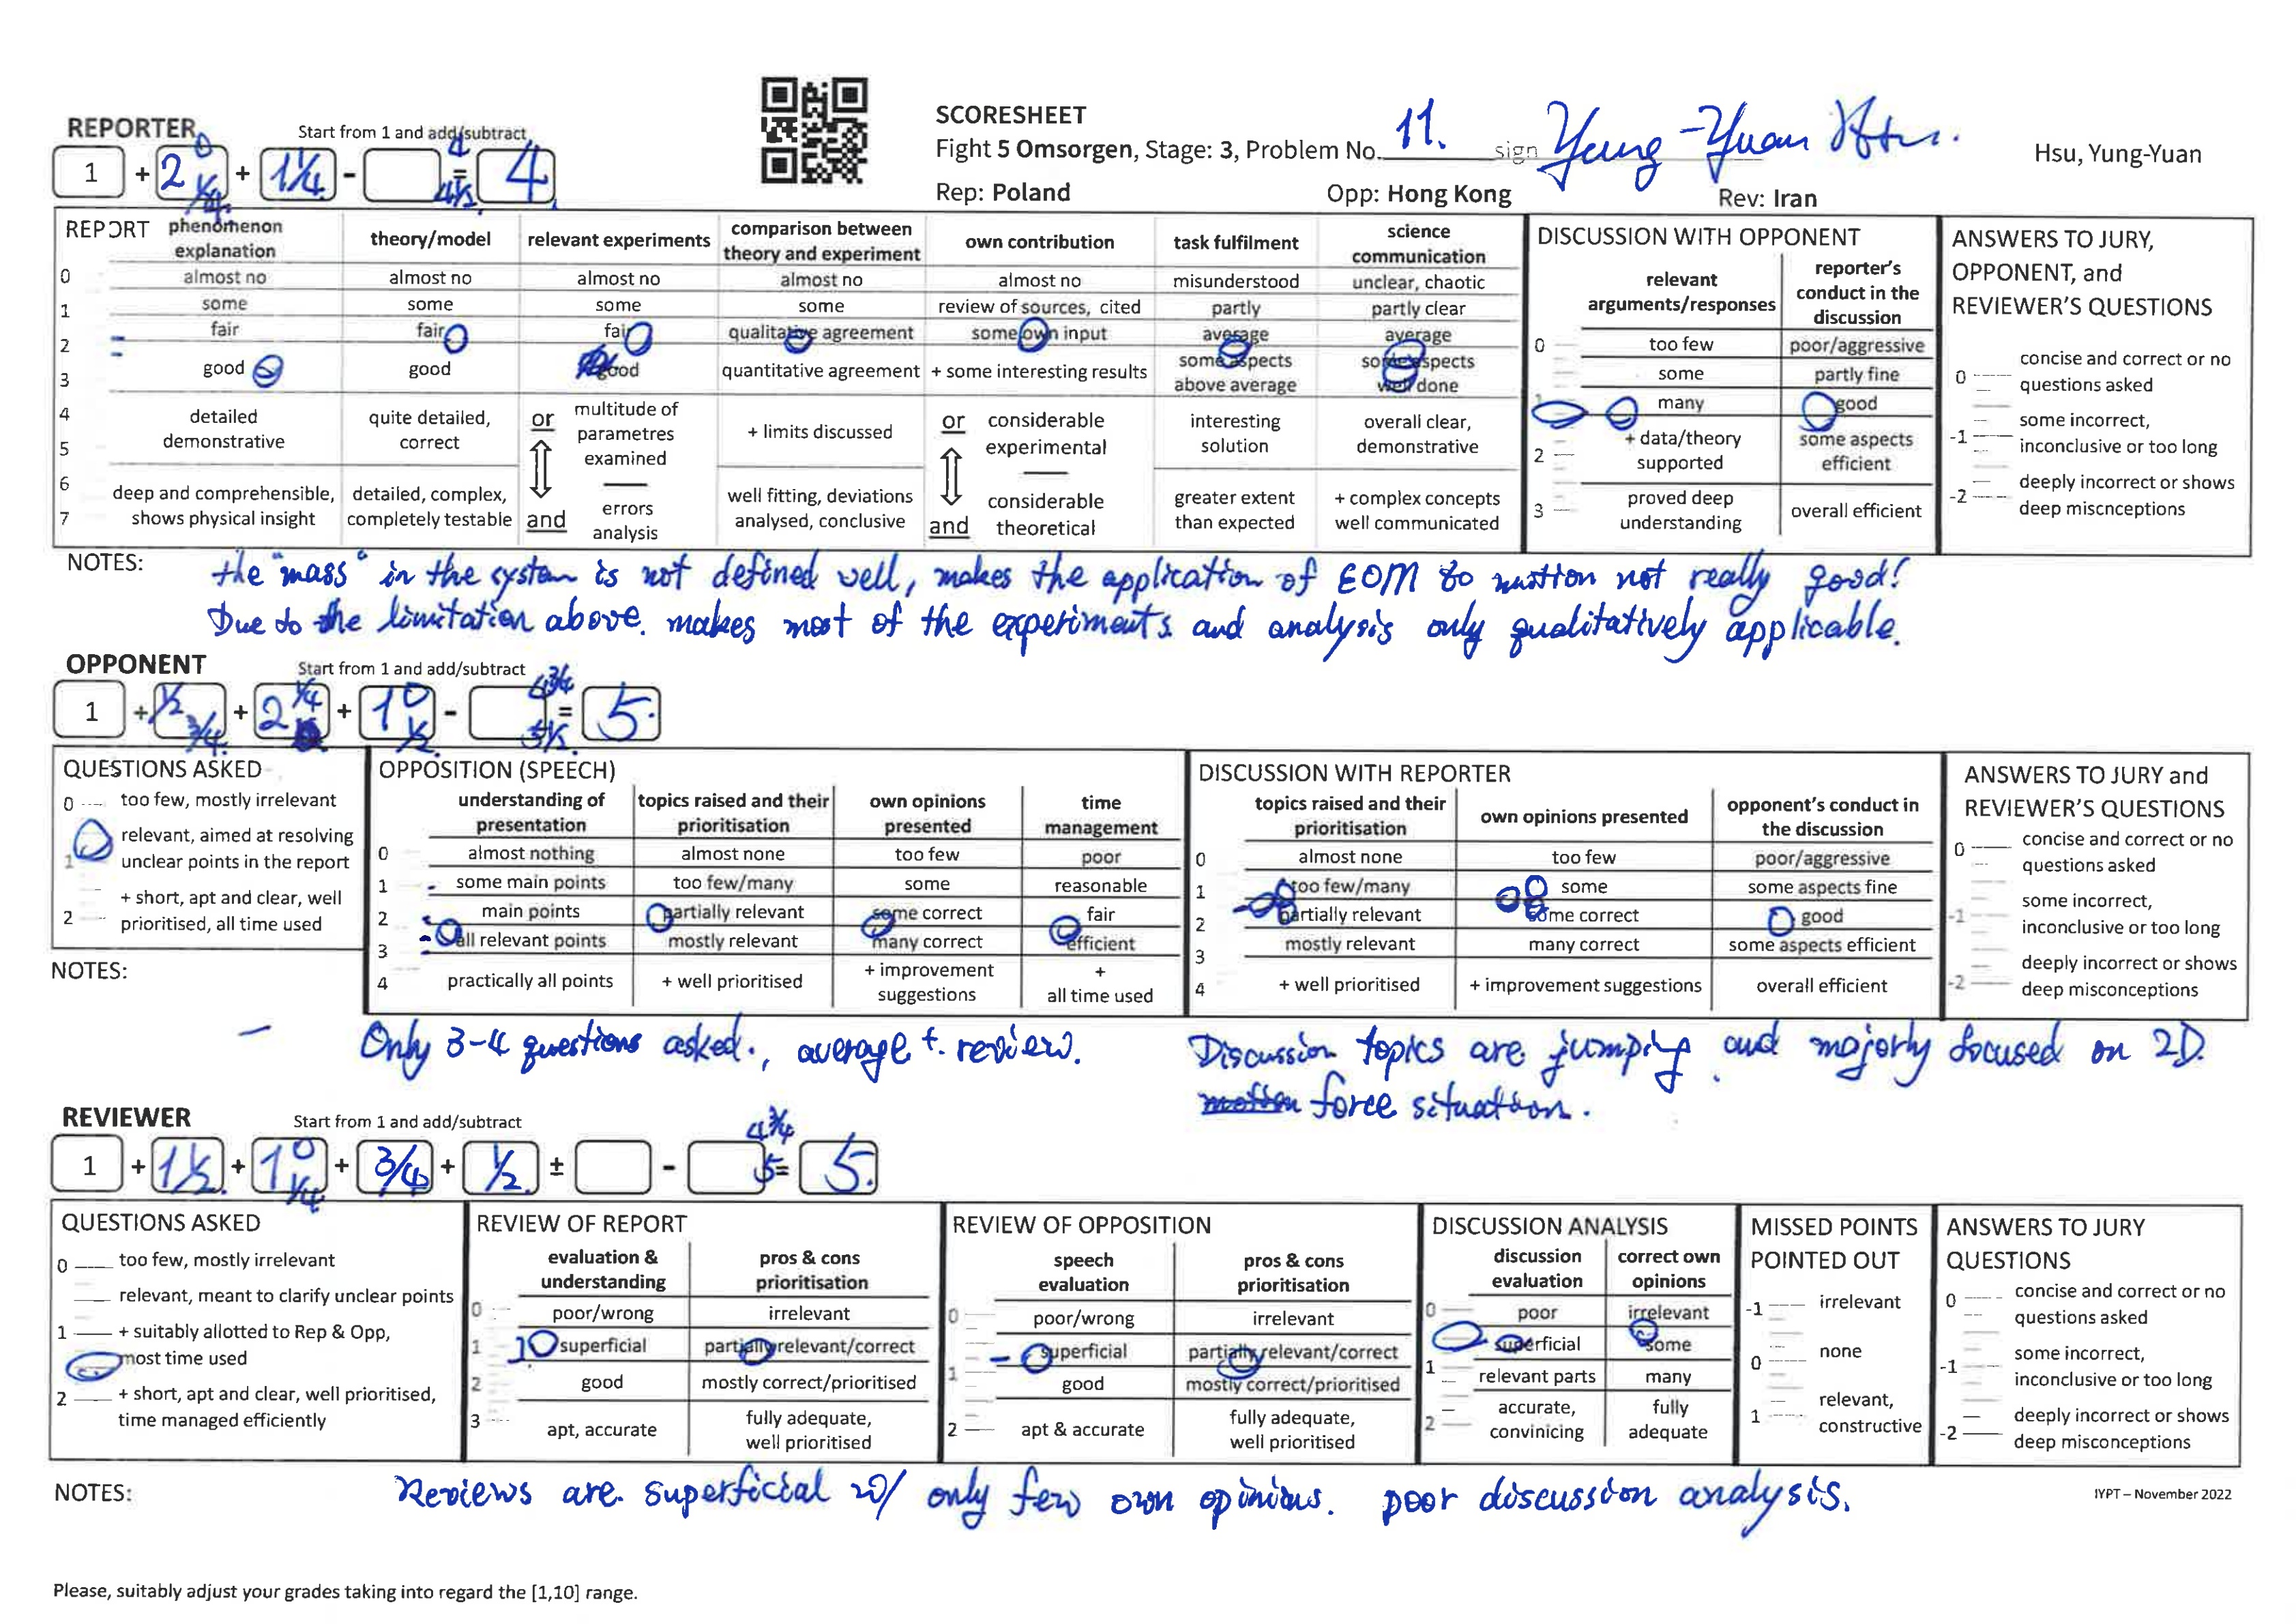 SCORESHEET
Fight 5 Omsorgen, Stage: 3, Problem No. 11. sign Yung-Yuan Hsu. Hsu, Yung-Yuan
Rep: Poland Opp: Hong Kong Rev: Iran
REPORTER Start from 1 and add/subtract
1 + 2 0 1/4 + 1 1/4 - 4 4 1/2 = 4
REPORT phenomenon explanation theory/model relevant experiments comparison between theory and experiment own contribution task fulfilment science communication
0 almost no almost no almost no almost no almost no misunderstood unclear, chaotic
1 some some some some review of sources, cited partly partly clear
2 fair fair fair qualitative agreement some own input average average
3 good good good quantitative agreement + some interesting results some aspects above average some aspects well done
4 5 detailed demonstrative quite detailed, correct or multitude of parametres examined + limits discussed or considerable experimental interesting solution overall clear, demonstrative
6 7 deep and comprehensible, shows physical insight detailed, complex, completely testable and errors analysis well fitting, deviations analysed, conclusive and considerable theoretical greater extent than expected + complex concepts well communicated
DISCUSSION WITH OPPONENT
relevant arguments/responses reporter's conduct in the discussion
0 too few poor/aggressive
some partly fine
1 many good
2 + data/theory supported some aspects efficient
3 proved deep understanding overall efficient
ANSWERS TO JURY, OPPONENT, and REVIEWER'S QUESTIONS
0 concise and correct or no questions asked
-1 some incorrect, inconclusive or too long
-2 deeply incorrect or shows deep miscnceptions
NOTES: the "mass" in the system is not defined well, makes the application of EOM to motion not really good!
Due to the limitation above. makes most of the experiments and analysis only qualitatively applicable.
OPPONENT Start from 1 and add/subtract
1 + 1/2 3/4 + 2 1/4 + 1 0 1/2 - 4 3/4 5 1/2 = 5.
QUESTIONS ASKED
0 too few, mostly irrelevant
1 relevant, aimed at resolving unclear points in the report
2 + short, apt and clear, well prioritised, all time used
OPPOSITION (SPEECH)
understanding of presentation topics raised and their prioritisation own opinions presented time management
0 almost nothing almost none too few poor
1 some main points too few/many some reasonable
2 main points partially relevant some correct fair
3 all relevant points mostly relevant many correct efficient
4 practically all points + well prioritised + improvement suggestions + all time used
DISCUSSION WITH REPORTER
topics raised and their prioritisation own opinions presented opponent's conduct in the discussion
0 almost none too few poor/aggressive
1 too few/many some some aspects fine
2 partially relevant some correct good
3 mostly relevant many correct some aspects efficient
4 + well prioritised + improvement suggestions overall efficient
ANSWERS TO JURY and REVIEWER'S QUESTIONS
0 concise and correct or no questions asked
-1 some incorrect, inconclusive or too long
-2 deeply incorrect or shows deep misconceptions
NOTES:
Only 3-4 questions asked., average t. review.
Discussion topics are jumping and majorly focused on 2D.
force situation.
REVIEWER Start from 1 and add/subtract
1 + 1 1/2. + 1 0 1/4 + 3/4 + 1/2. ± - 4 3/4 5 = 5.
QUESTIONS ASKED
0 too few, mostly irrelevant
relevant, meant to clarify unclear points
1 + suitably allotted to Rep & Opp, most time used
2 + short, apt and clear, well prioritised, time managed efficiently
REVIEW OF REPORT
evaluation & understanding pros & cons prioritisation
0 poor/wrong irrelevant
1 superficial partially relevant/correct
2 good mostly correct/prioritised
3 apt, accurate fully adequate, well prioritised
REVIEW OF OPPOSITION
speech evaluation pros & cons prioritisation
0 poor/wrong irrelevant
superficial partially relevant/correct
1 good mostly correct/prioritised
2 apt & accurate fully adequate, well prioritised
DISCUSSION ANALYSIS
discussion evaluation correct own opinions
0 poor irrelevant
superficial some
1 relevant parts many
2 accurate, convinicing fully adequate
MISSED POINTS POINTED OUT
-1 irrelevant
0 none
1 relevant, constructive
ANSWERS TO JURY QUESTIONS
0 concise and correct or no questions asked
-1 some incorrect, inconclusive or too long
-2 deeply incorrect or shows deep misconceptions
NOTES: Reviews are superficial w/ only few own opinions. poor discussion analysis.
IYPT – November 2022
Please, suitably adjust your grades taking into regard the [1,10] range.